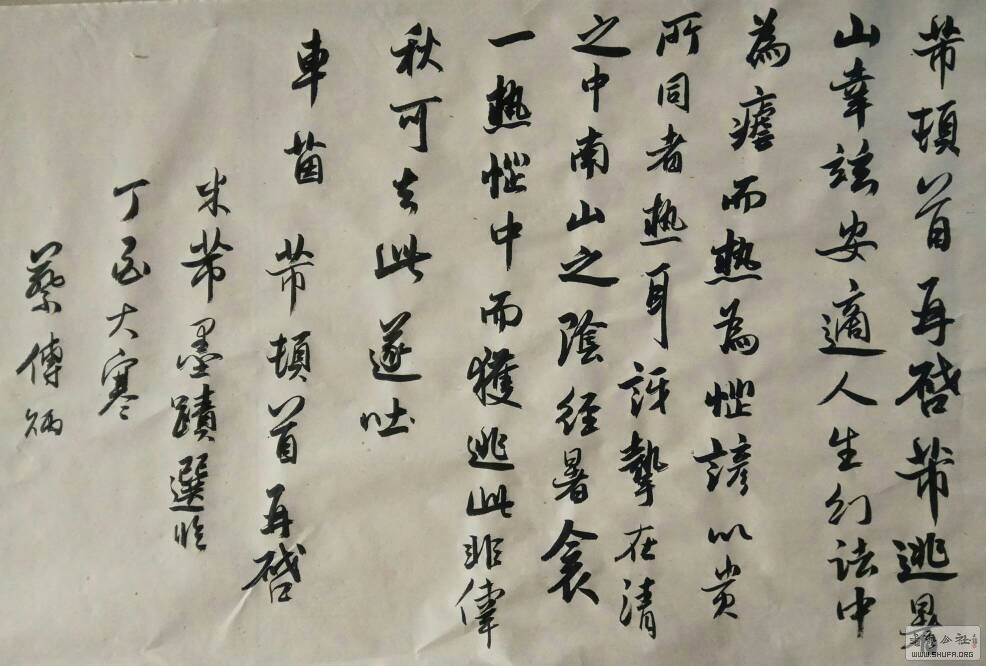 芾頓首再啓芾逃暑
山幸茲安適人生幻法中
為虐而熱為惱諺以貴
所同者熱耳訝摯在清
之中南山之陰經暑衾
一熱惱中而獲逃此非偉
秋可去此遂吐
車茵 芾頓首再啓
米芾墨蹟選臨
丁酉大寒
蔡傳炳
WWW.SHUFA.ORG